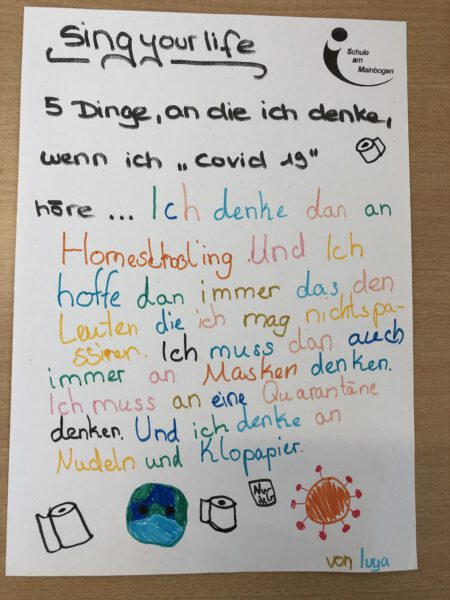 Sing your life
Schule
am
Mainbogen
5 Dinge, an die ich denke,
wenn ich „Covid 19"
höre ... Ich denke dan an
Homeschooling. Und Ich
hoffe dan immer das den
Leuten die ich mag nichtspa-
ssiren. Ich muss dan auch
immer an Masken denken.
Ich muss an eine Quarantäne
denken. Und ich denke an
Nudeln und Klopapier.
Nu-
deln
von luya